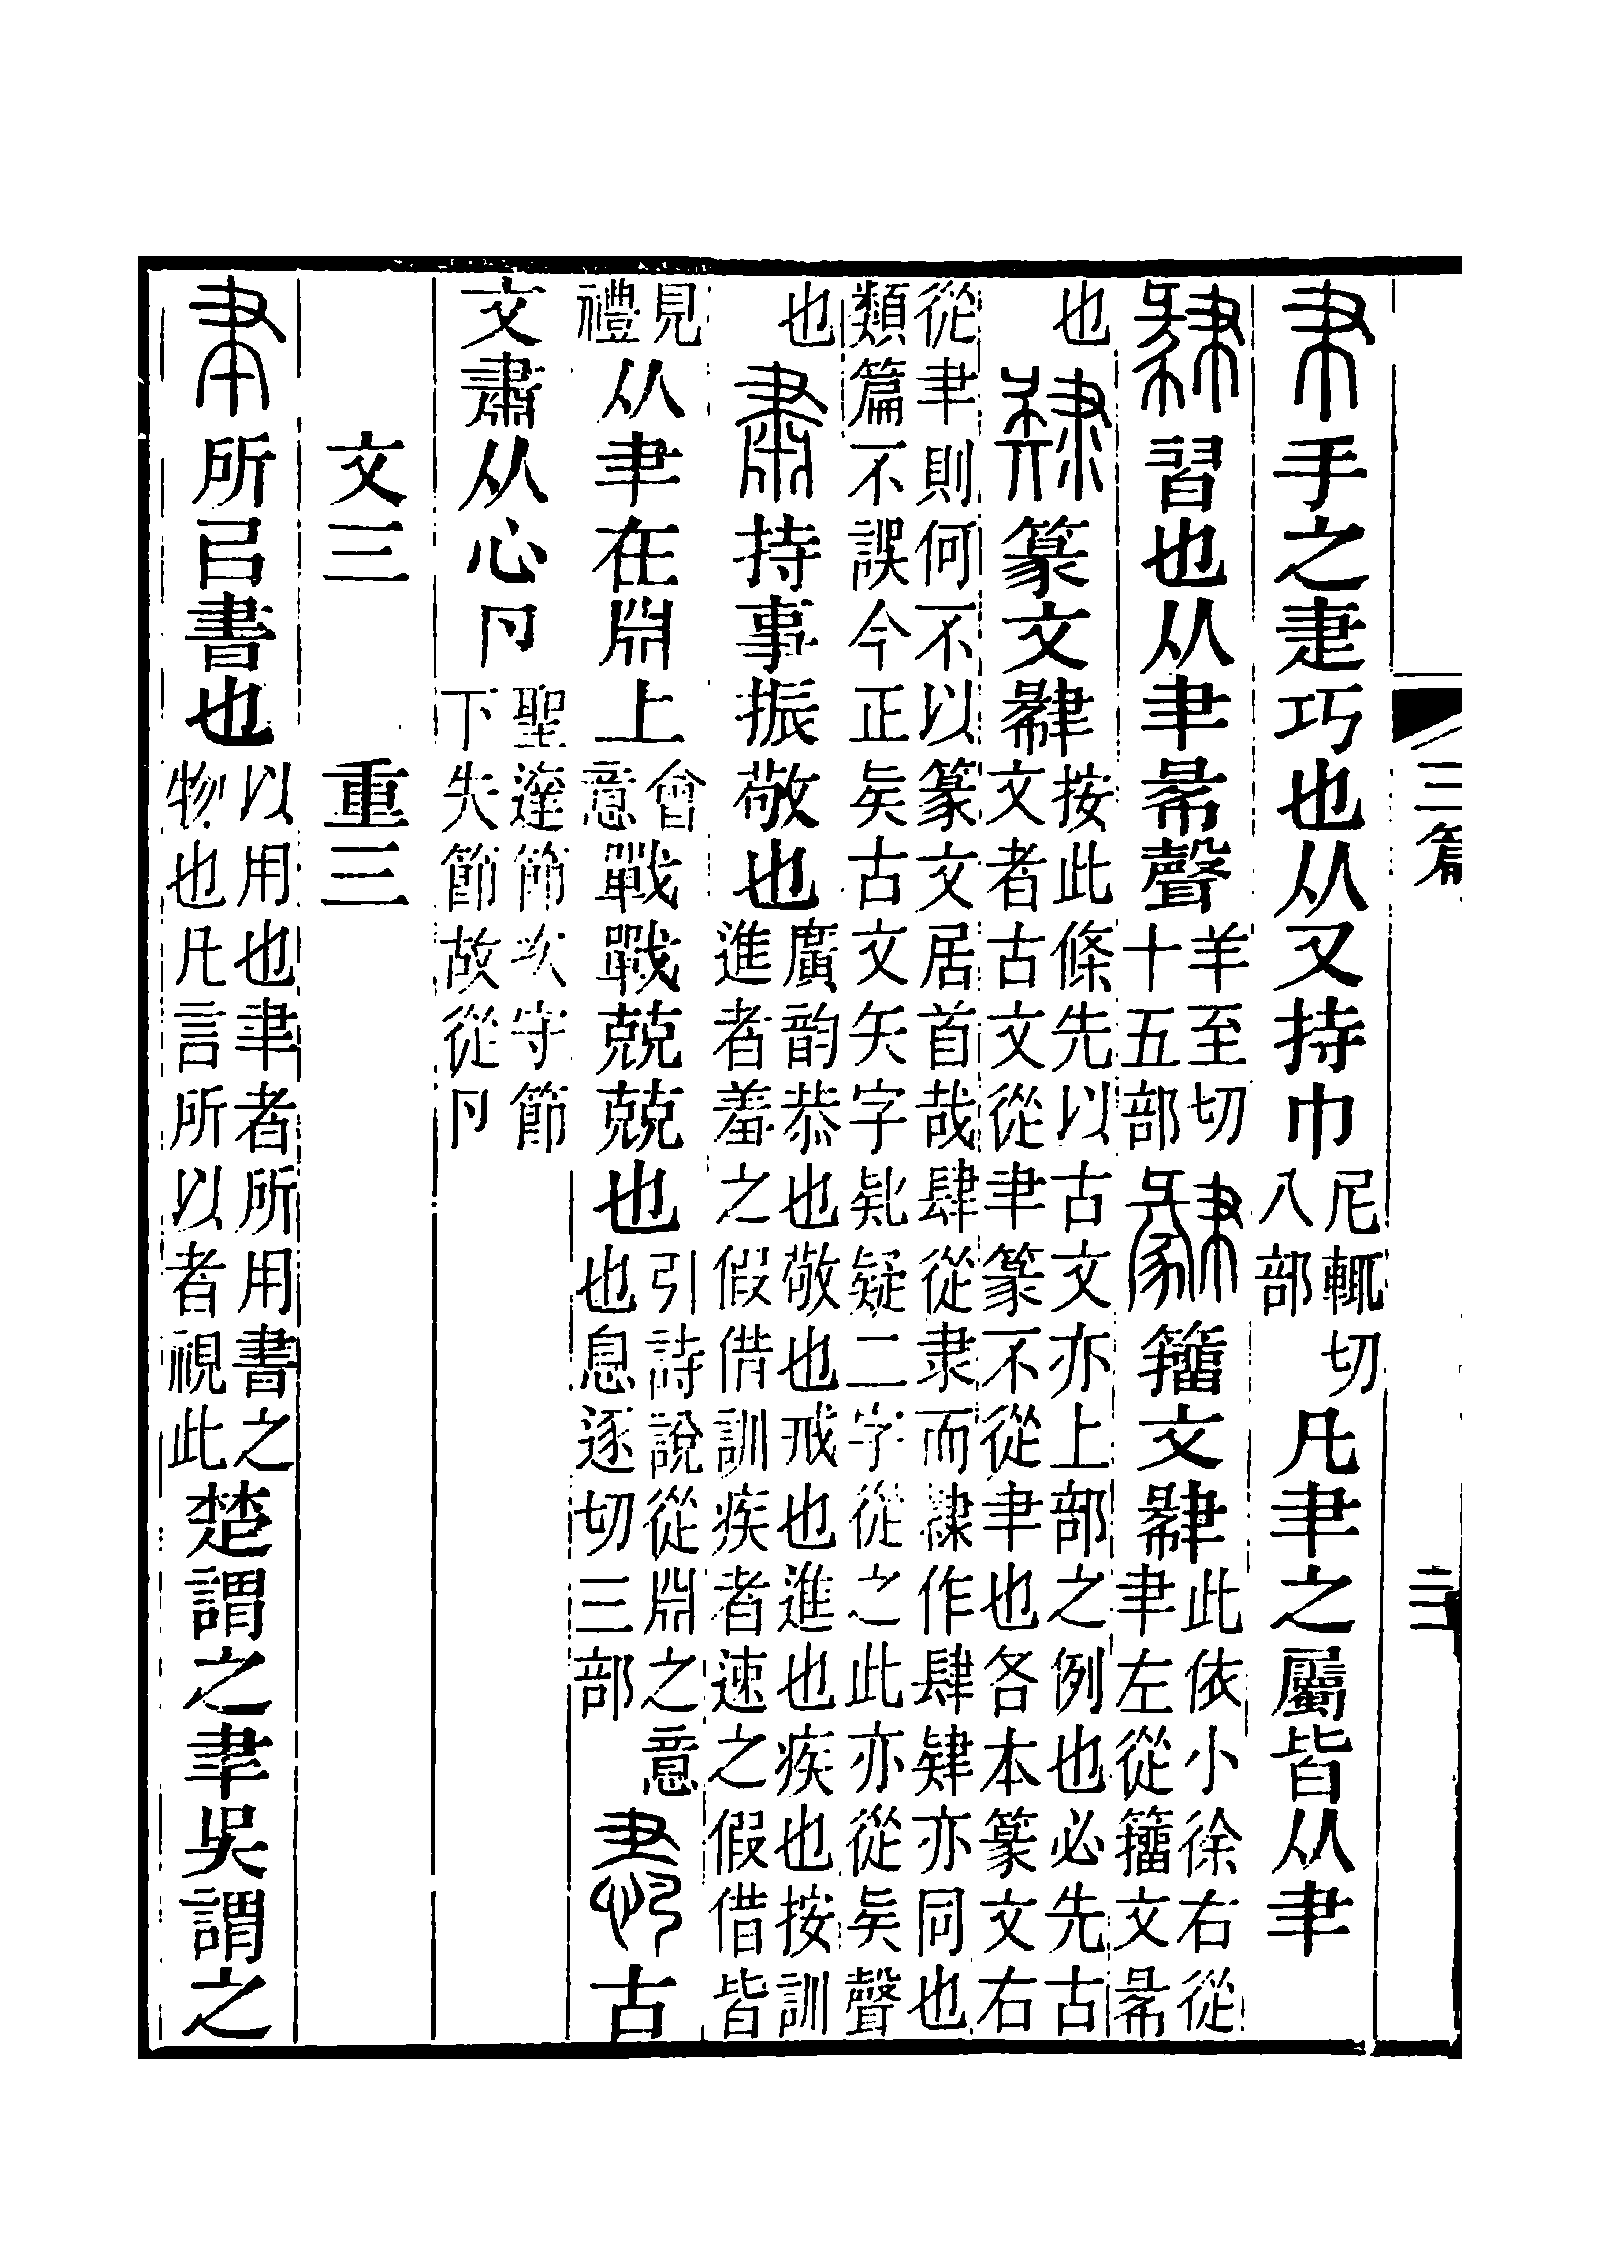 三篇
𦘒手之疌巧也从又持巾尼輒切八部凡𦘒之屬皆从𦘒
𢑱習也从𦘒㣇聲羊至切十五部籒文𢑱此依小徐右從𦘒左從籒文㣇
也肄篆文𢑱按此條先以古文亦上部之例也必先古文者古文從𦘒篆不從𦘒也各本篆文右
從𦘒則何不以篆文居首哉肆從隶而隸作肆肄亦同也類篇不誤今正矣古文矢字𣅩疑二字從之此亦從矣聲
也肅持事振敬也廣韵恭也敬也戒也進也疾也按訓進者羞之假借訓疾者速之假借皆
見禮从𦘒在𣶒上會意戰戰兢兢也引詩說從𣶒之意也息逐切三部𢙻古
文肅从心卪聖達節次守節下失節故從卪
文三　重三
聿所㠯書也以用也聿者所用書之物也凡言所以者視此楚謂之聿吳謂之